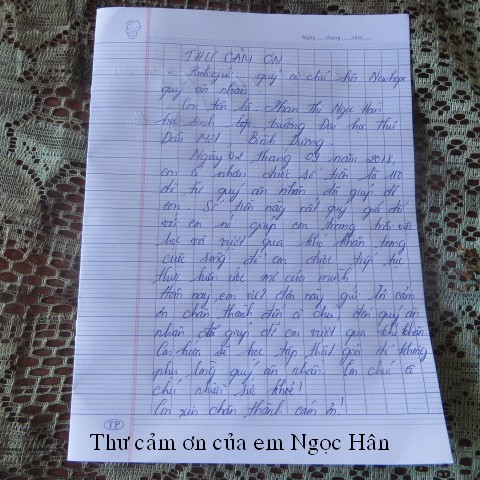 Ngày.....tháng.....năm.....
THƯ CẢM ƠN
Kính gửi: quý cô chú hội
quý ân nhân.
Con tên là Phan Thị Ngọc Hân
học sinh tập trường Đại học Thủ
Dầu Một, Bình Dương.
Ngày 02 tháng 09 năm 2018,
con có nhận được số tiền là 100
đô từ quý ân nhân đã giúp đỡ
con. Số tiền này rất quý giá đối
với em nó giúp em trong trong việc
học và vượt qua khó khăn trong
cuộc sống để em được tiếp tục
thực hiện ước mơ của mình
Hôm nay em viết đơn này gửi lời cảm
ơn chân thành đến cô chú đến quý ân
nhân đã giúp đỡ em vượt qua khó khăn.
Con hứa sẽ học tập thật giỏi để không
phụ lòng quý ân nhân. Con chúc cô
chú nhiều sức khoẻ!
Con xin chân thành cám ơn!
TP
Thư cảm ơn của em Ngọc Hân